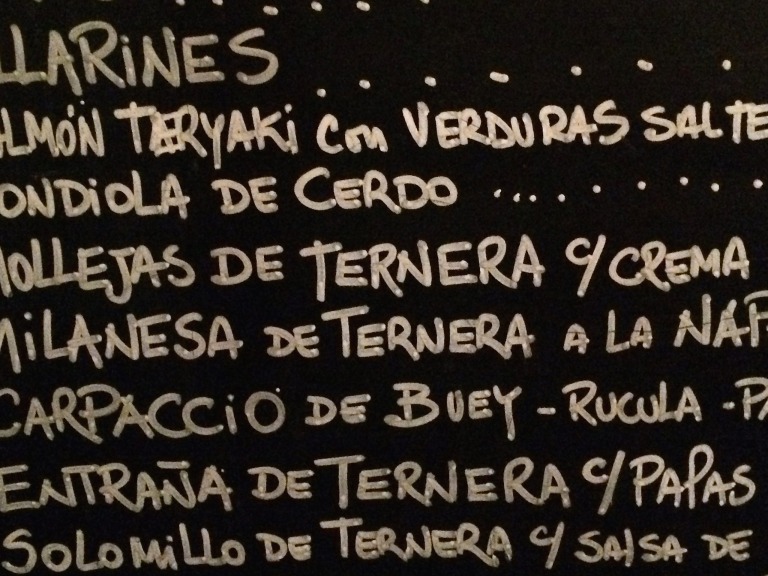 LLARINES . . . . . . .
ALMÓN TERYAKI con VERDURAS SALTE
ONDIOLA DE CERDO .........
MOLLEJAS DE TERNERA C/ CREMA
MILANESA DE TERNERA A LA NAP
CARPACCIO DE BUEY - RUCULA - PA
ENTRAÑA DE TERNERA C/ PAPAS
SOLOMILLO DE TERNERA C/ SALSA DE